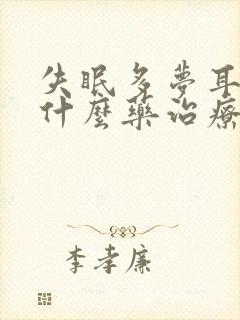 失眠多夢耳
什麼藥治療
李孝廉